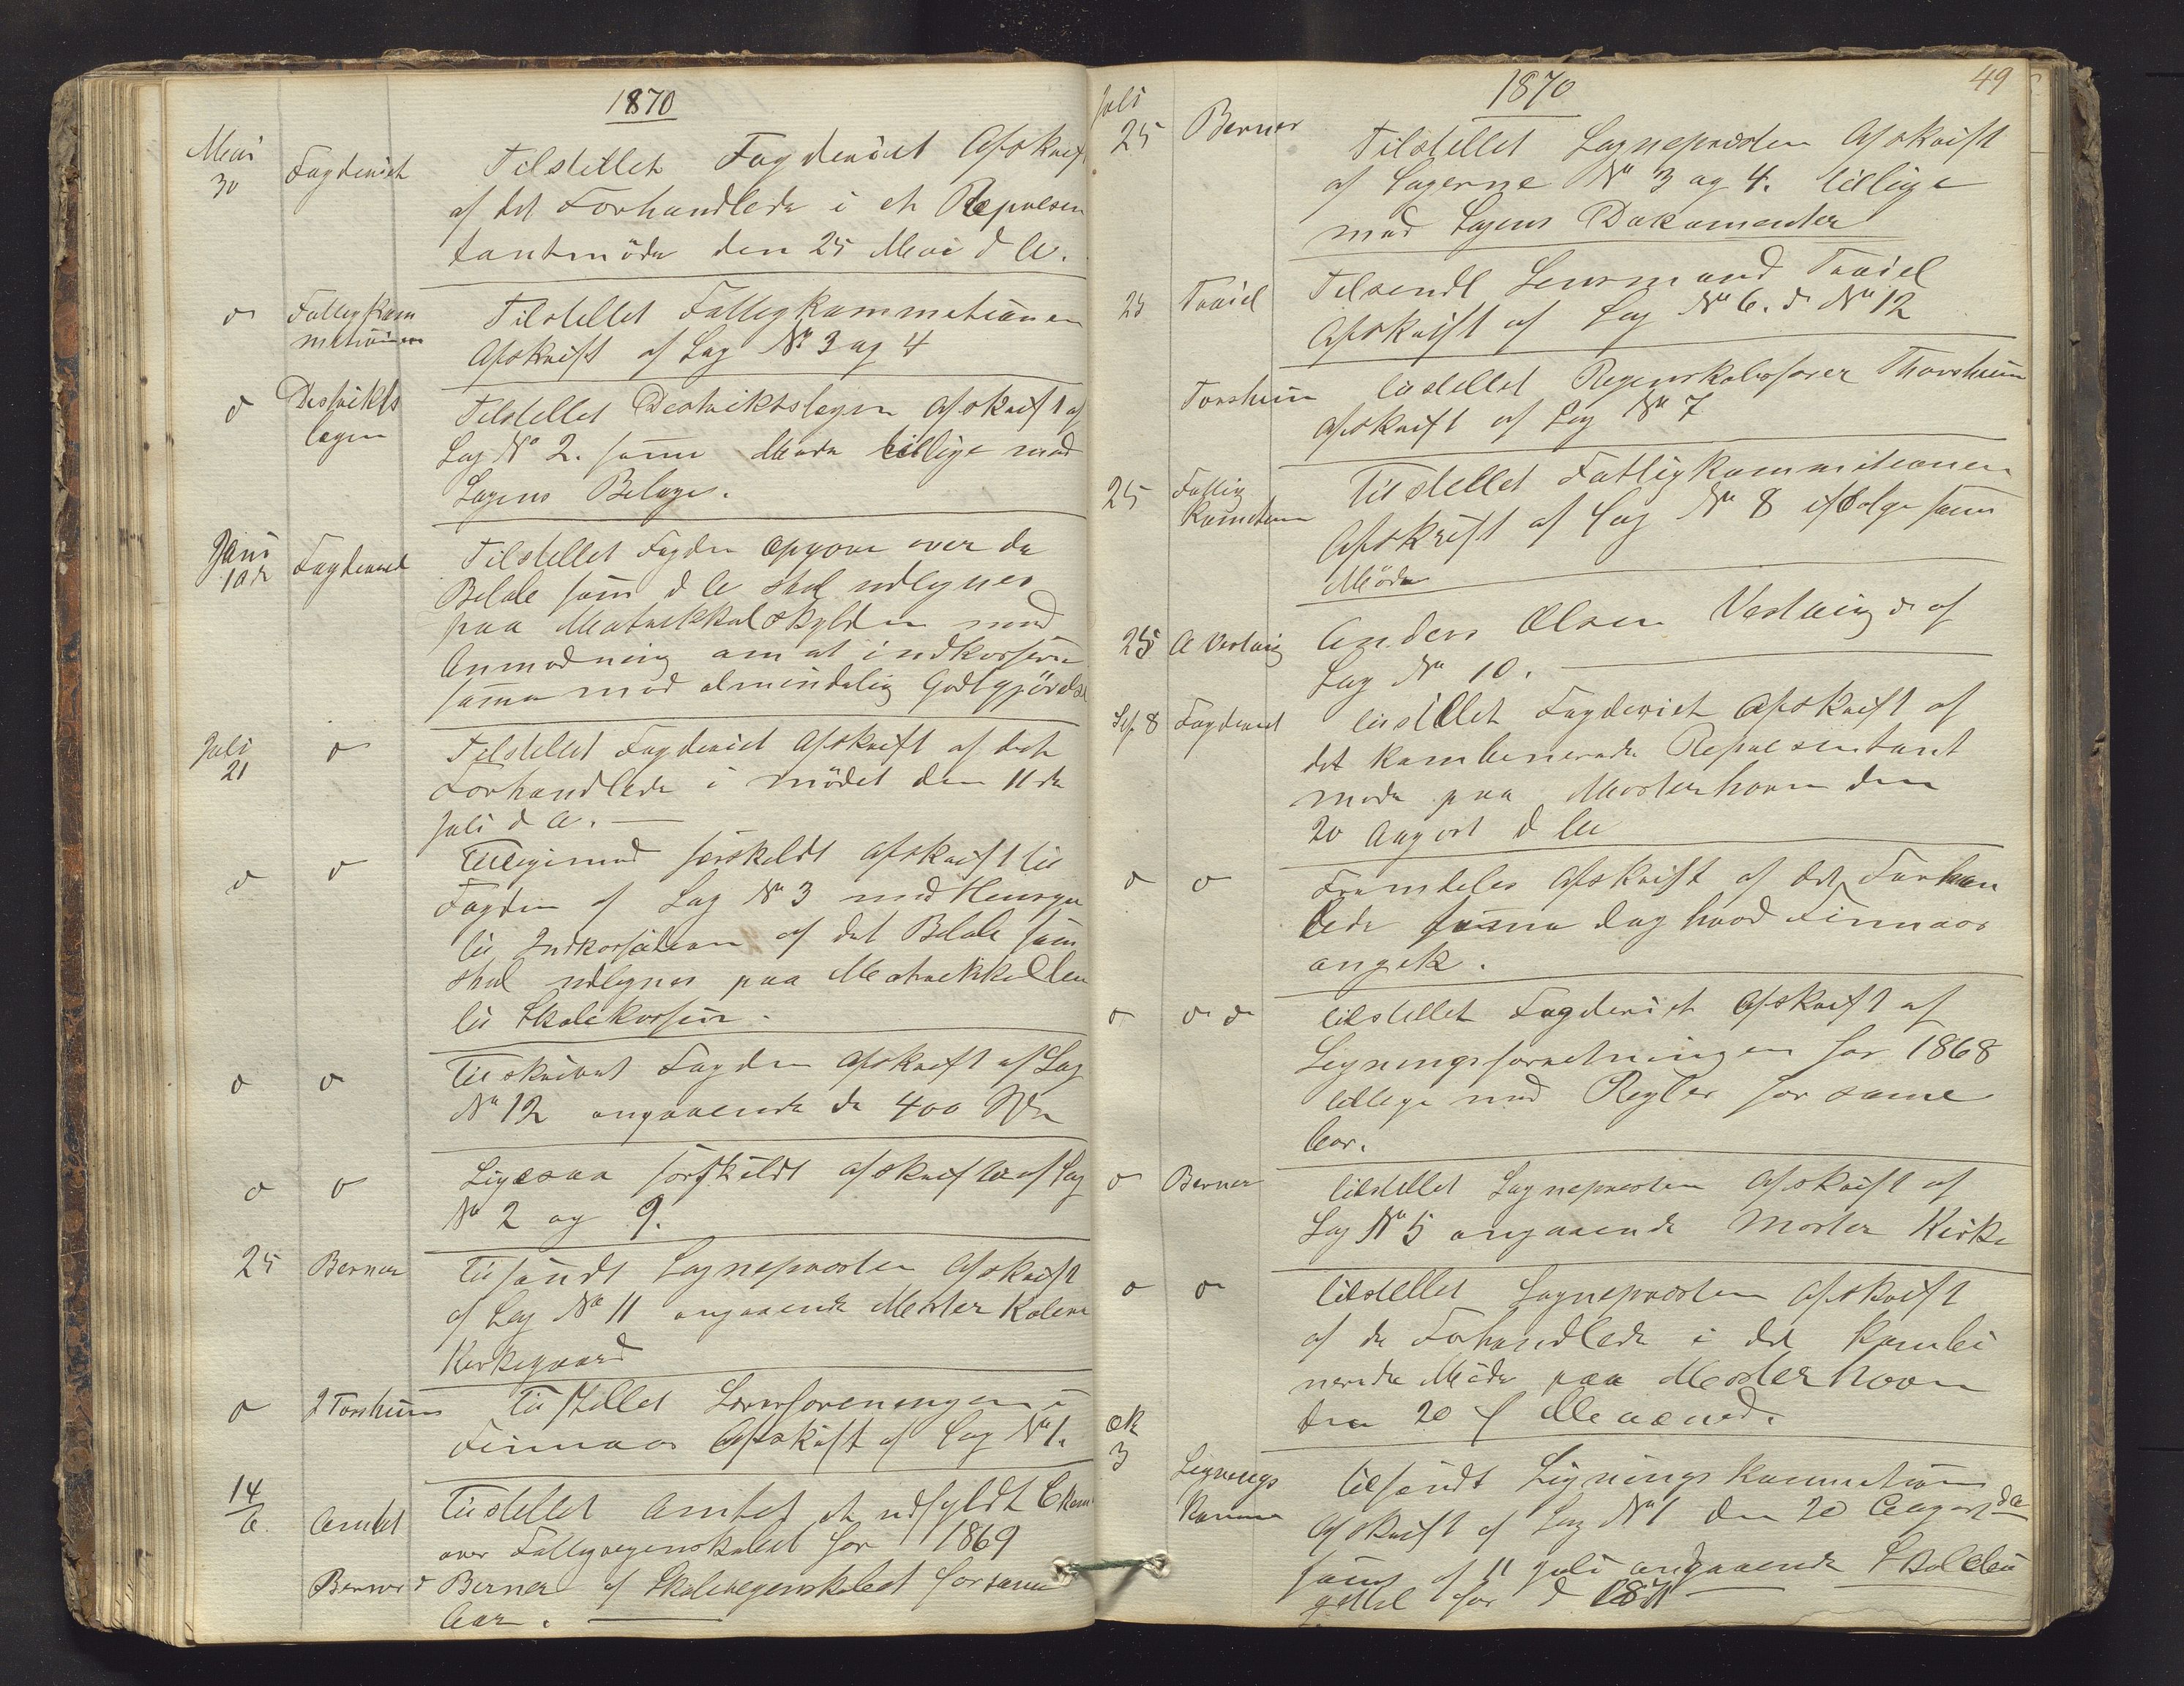 1870
Mai
30
Fogderiet
Tilstillet Fogderiet Afskrift
af det Forhandlede i et Repræsen
tantmöde den 25 Mai d A.
d
Fattigkom
metionen
Tilstillet Fattigkommetionen
Afskrift af Sag No 3 og 4
d
Destrikts
lægen
Tilstillet Destriktslægen Afskrift af
Sag No 2. samme Möde tillige med
Sagens Belage.
Juni
10de
Fogderiet
Tilstillet Fogden Opgave over de
Beløb som d A skal udlignes
paa Matrikkulskylden med
Anmodning om at indkassere
samme mod almindelig Godtgjörelse
Juli
21
d
Tilstillet Fogderiet Afskrift af det
Forhandlede i mödet den 11te
Juli d A.
d
d
Tilligemed særskildt Afskrift til
Fogden af Sag No 3 med Hensyn
til Indkasjätionen af det Beløb som
skal udlignes paa Matrikkullen
til Skolekassen.
d
d
Tilskrivet Fogden Afskrift af Sag
No 12 angaaende de 400 Spd
d
d
Ligesaa særskildt Afskrift til af Sag
No 2 og 9.
25
Berner
Tilsendt Sognepresten Afskrift
af Sag No 11 angaaende Moster Kolera
Kirkegaard
d
J Torsheim
Tilstillet Lærerforeningen i
Finnaas Afskrift af Sag No 1.
14
6.
Amtet
Tilstillet Amtet et udfyldt Skema
over Fattigregenskabet for 1869
Berner
d Berner af Skoleregenskabet for samme
Aar.
49
1870
Juli
25
Berner
Tilstillet Sognepresten Afskrift
af Sagerne No 3 og 4. tillige
med Sagens Dokumenter
25
Troiel
Tilsendt Lensmand Troiel
Afskrift af Sag No 6. d No 12
Torsheim
tilstillet Regenskabsforer Thorsheim
Afskrift af Sag No 7
25
Fattig
Komitionen
Tilstillet Fattigkommitionen
Afskrift af Sag No 8 ifølge samme
Möde
25
A Vestvig
Anders Olsen Vestvig d af
Sag No 10.
Sep 8
Fogderiet
tilstillet Fogderiet Afskrift af
det kombenerede Repræsentant
mode paa Mosterhavn den
20 August d A
d
d
Fremdeles Afskrift af det Forhan
lede samme Dag hvad Finnaas
angik.
d
d d
tilstillet Fogderiet Afskrift af
Ligningsforretningen for 1868
tillige med Regler for samme
Aar.
d
Berner
tilstillet Sognepresten Afskrift af
Sag No 5 angaaende Moster Kirke
d
d
tilstillet Sognepresten Afskrift
af de Forhandlede i det kombi
nerede Möde paa Mosterhavn
den 20 f Maaned.
Ok
3
Lignings
Komme
tilsendt Lignings Kommetionen
Afskrift af Sag No 1 den 20 August d A
samt af 11 Juli angaaende Skoleen
for d 1871